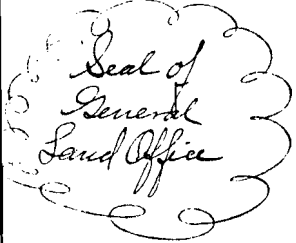 Seal of
General
Land Office